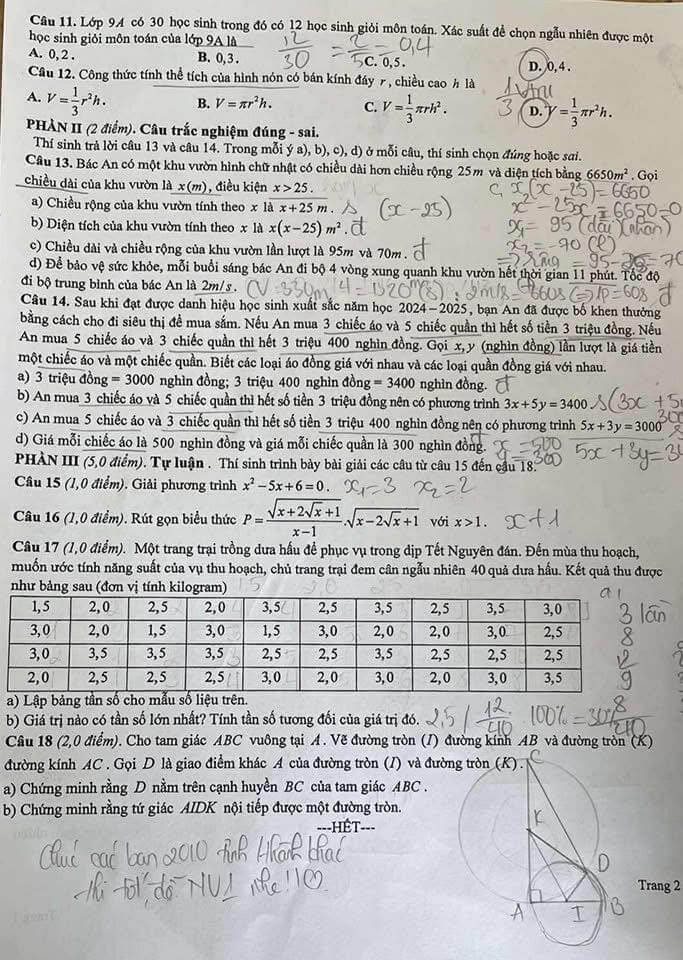 Câu 11. Lớp 9A có 30 học sinh trong đó có 12 học sinh giỏi môn toán. Xác suất để chọn ngẫu nhiên được một
học sinh giỏi môn toán của lớp 9A là 12/30 = 2/5 = 0,4
A. 0,2. B. 0,3. C. 0,5. D. 0,4.
Câu 12. Công thức tính thể tích của hình nón có bán kính đáy r, chiều cao h là
A. V = 1/3 r²h. B. V = πr²h. C. V = 1/3 πrh². D. V = 1/3 πr²h.
PHẦN II (2 điểm). Câu trắc nghiệm đúng - sai.
Thí sinh trả lời câu 13 và câu 14. Trong mỗi ý a), b), c), d) ở mỗi câu, thí sinh chọn đúng hoặc sai.
Câu 13. Bác An có một khu vườn hình chữ nhật có chiều dài hơn chiều rộng 25m và diện tích bằng 6650m². Gọi
chiều dài của khu vườn là x(m), điều kiện x > 25. c, x(x-25)=6650
a) Chiều rộng của khu vườn tính theo x là x + 25 m. s (x-25) x² - 25x - 6650=0
b) Diện tích của khu vườn tính theo x là x(x-25) m². đ x₁ = 95 (dài) (nhận)
x₂ = -70 (l)
c) Chiều dài và chiều rộng của khu vườn lần lượt là 95m và 70m. đ => rộng = 95-25=70
d) Để bảo vệ sức khỏe, mỗi buổi sáng bác An đi bộ 4 vòng xung quanh khu vườn hết thời gian 11 phút. Tốc độ
đi bộ trung bình của bác An là 2m/s. đ
Câu 14. Sau khi đạt được danh hiệu học sinh xuất sắc năm học 2024 – 2025, bạn An đã được bố khen thưởng
bằng cách cho đi siêu thị để mua sắm. Nếu An mua 3 chiếc áo và 5 chiếc quần thì hết số tiền 3 triệu đồng. Nếu
An mua 5 chiếc áo và 3 chiếc quần thì hết 3 triệu 400 nghìn đồng. Gọi x, y (nghìn đồng) lần lượt là giá tiền
một chiếc áo và một chiếc quần. Biết các loại áo đồng giá với nhau và các loại quần đồng giá với nhau.
a) 3 triệu đồng = 3000 nghìn đồng; 3 triệu 400 nghìn đồng = 3400 nghìn đồng. đ
b) An mua 3 chiếc áo và 5 chiếc quần thì hết số tiền 3 triệu đồng nên có phương trình 3x + 5y = 3400 s (3x + 5
c) An mua 5 chiếc áo và 3 chiếc quần thì hết số tiền 3 triệu 400 nghìn đồng nên có phương trình 5x + 3y = 3000
d) Giá mỗi chiếc áo là 500 nghìn đồng và giá mỗi chiếc quần là 300 nghìn đồng. đ x = 500
y = 300 5x + 3y = 34
PHẦN III (5,0 điểm). Tự luận. Thí sinh trình bày bài giải các câu từ câu 15 đến câu 18.
Câu 15 (1,0 điểm). Giải phương trình x² – 5x + 6 = 0. x₁ = 3 x₂ = 2
Câu 16 (1,0 điểm). Rút gọn biểu thức P = √(x+2√x+1)/(x–1) . √(x–2√x+1) với x > 1. x+1
Câu 17 (1,0 điểm). Một trang trại trồng dưa hấu để phục vụ trong dịp Tết Nguyên đán. Đến mùa thu hoạch,
muốn ước tính năng suất của vụ thu hoạch, chủ trang trại đem cân ngẫu nhiên 40 quả dưa hấu. Kết quả thu được
như bảng sau (đơn vị tính kilogram)
1,5 2,0 2,5 2,0 3,5 2,5 3,5 2,5 3,5 3,0 3 lần
3,0 2,0 1,5 3,0 1,5 3,0 2,0 2,0 3,0 2,5 8
3,0 3,5 3,5 3,5 2,5 2,5 3,5 2,5 2,5 2,5 12
2,0 2,5 2,5 2,5 3,0 2,0 3,0 2,0 3,0 3,5 9
a) Lập bảng tần số cho mẫu số liệu trên. 8
b) Giá trị nào có tần số lớn nhất? Tính tần số tương đối của giá trị đó. 2,5 / 12/40 100% = 30%
Câu 18 (2,0 điểm). Cho tam giác ABC vuông tại A. Vẽ đường tròn (I) đường kính AB và đường tròn (K)
đường kính AC. Gọi D là giao điểm khác A của đường tròn (I) và đường tròn (K).
a) Chứng minh rằng D nằm trên cạnh huyền BC của tam giác ABC.
b) Chứng minh rằng tứ giác AIDK nội tiếp được một đường tròn.
---HẾT---
C
K
D
A I B
Chúc các bạn 2010 tỉnh
thi tốt, đỗ NV1 nhe!!
Trang 2